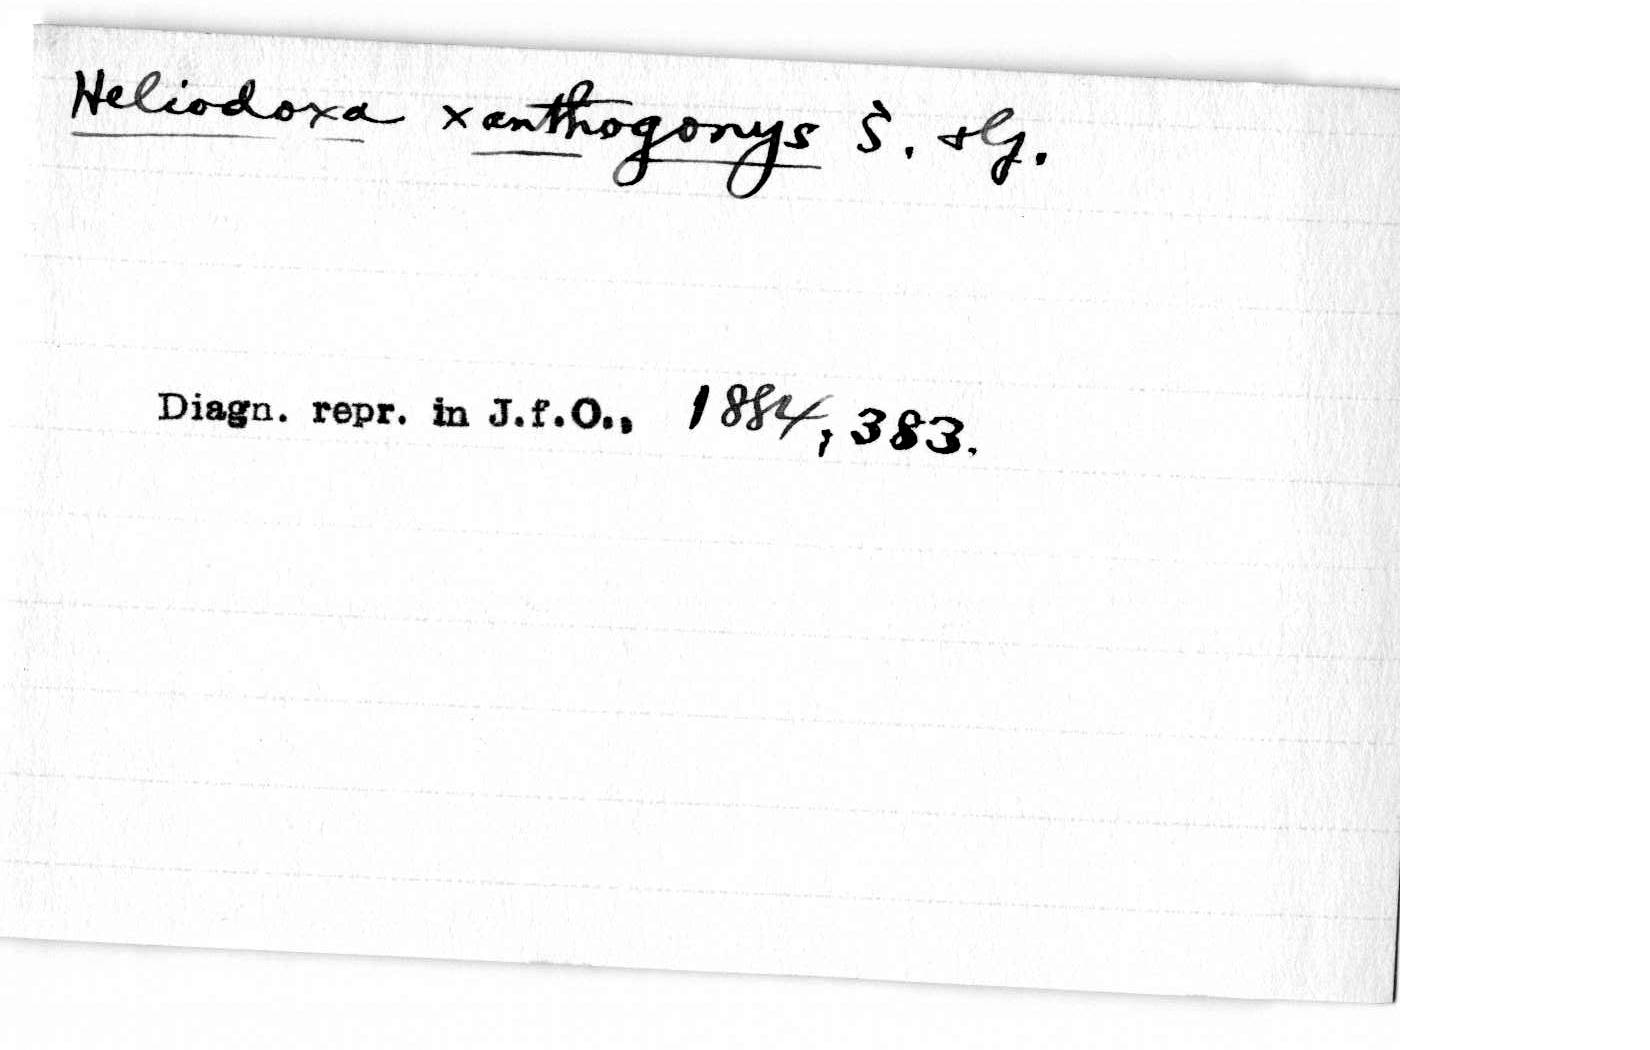 Heliodoxa xanthogonys S. & G.
Diagn. repr. in J.f.O., 1884, 383.